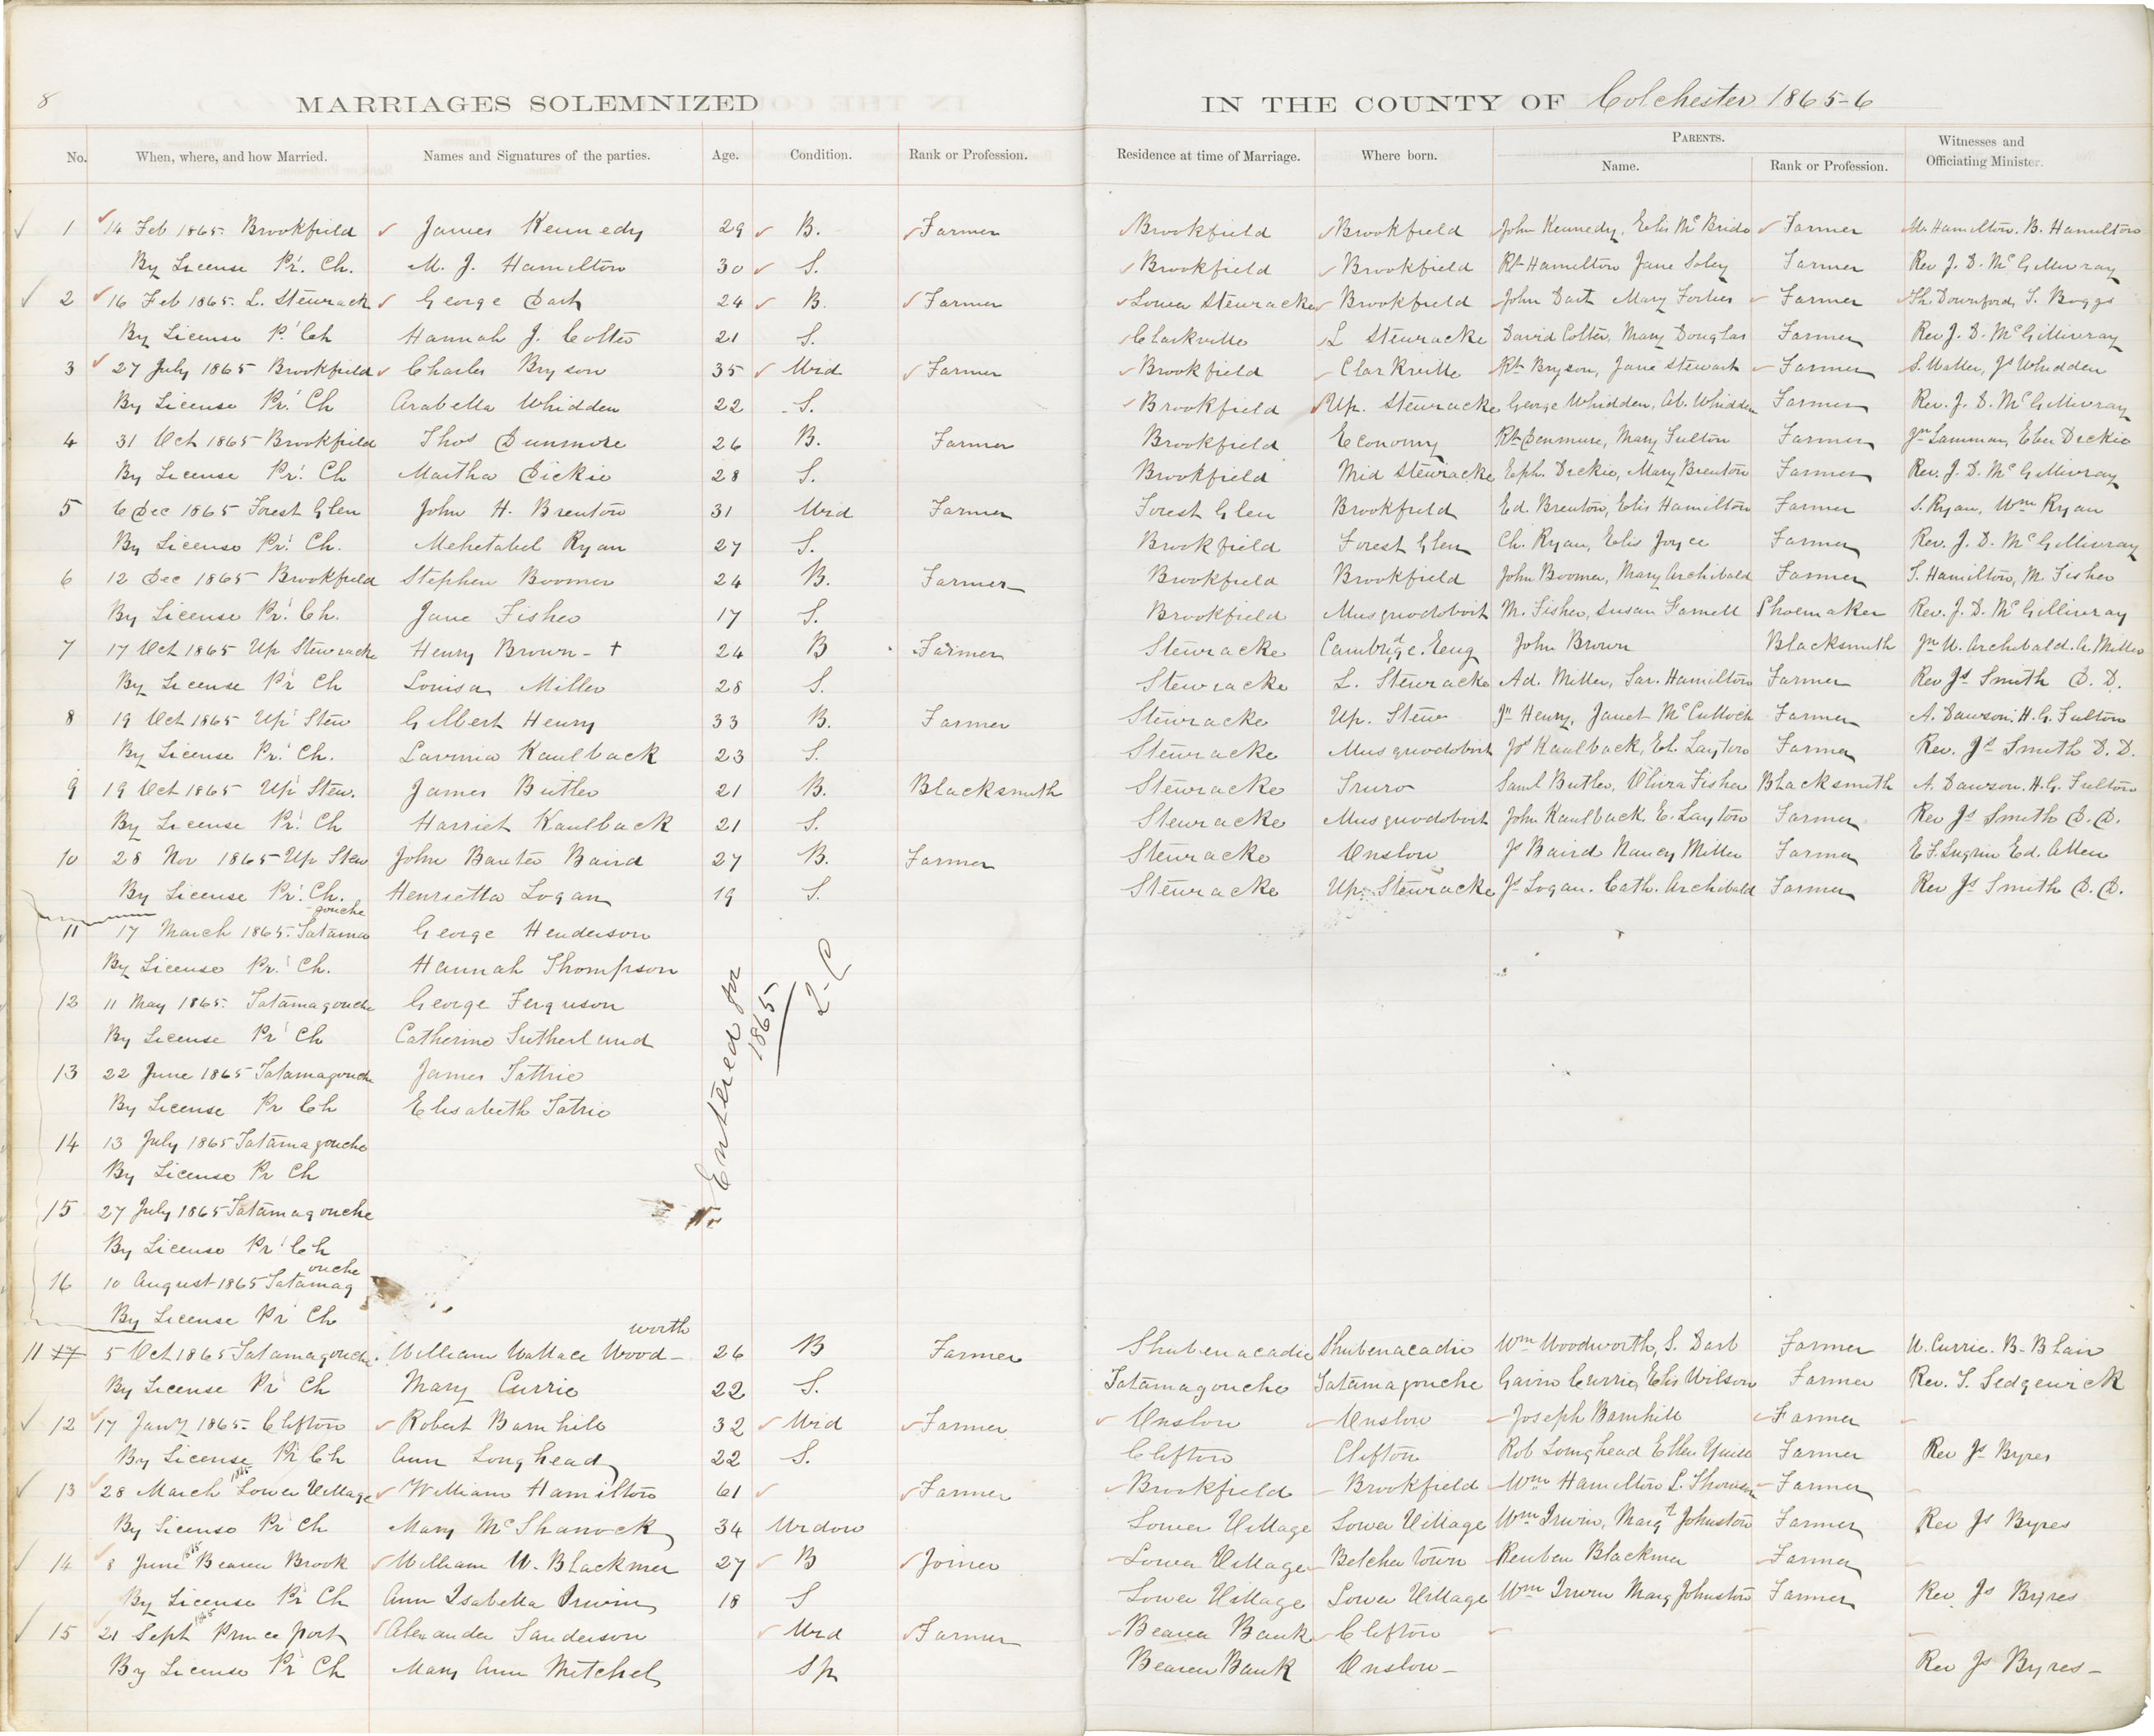 8 MARRIAGES SOLEMNIZED IN THE COUNTY OF Colchester 1865-6
No. When, where, and how Married. Names and Signatures of the parties. Age. Condition. Rank or Profession. Residence at time of Marriage. Where born. PARENTS. Name. Rank or Profession. Witnesses and Officiating Minister.
1 14 Feb 1865 Brookfield James Kennedy 29 B. Farmer Brookfield Brookfield John Kennedy, Elis McBride Farmer M. Hamilton. B. Hamilton
By License Pr. Ch. M. J. Hamilton 30 S. Brookfield Brookfield Rt Hamilton Jane Soley Farmer Rev J. D. McGillivray
2 16 Feb 1865. L. Stewiacke George Dart 24 B. Farmer Lower Stewiacke Brookfield John Dart Mary Forbes Farmer Th. Downford, S. Boggs
By License Pr. Ch Hannah J. Colter 21 S. Clarkville L Stewiacke David Colter, Mary Douglas Farmer Rev J. D. McGillivray
3 27 July 1865 Brookfield Charles Bryson 35 Wid Farmer Brookfield Clarkville Rt Bryson, Jane Stewart Farmer S. Waller, Js Whidden
By License Pr. Ch Arabella Whidden 22 S. Brookfield Up. Stewiacke George Whidden, Ab. Whidden Farmer Rev. J. D. McGillivray
4 31 Oct 1865 Brookfield Thos Dunmore 26 B. Farmer Brookfield Economy Rt Denmure, Mary Fulton Farmer Jn Lamman, Eben Dickie
By License Pr. Ch Martha Dickie 28 S. Brookfield Mid Stewiacke Eph. Dickie, Mary Brenton Farmer Rev. J. D. McGillivray
5 6 Dec 1865 Forest Glen John H. Brenton 31 Wid Farmer Forest Glen Brookfield Ed. Brenton, Elis Hamilton Farmer S. Ryan, Wm Ryan
By License Pr. Ch. Mehetabel Ryan 27 S. Brookfield Forest Glen Ch. Ryan, Elis Joyce Farmer Rev. J. D. McGillivray
6 12 Dec 1865 Brookfield Stephen Boomer 24 B. Farmer Brookfield Brookfield John Boomer, Mary Archibald Farmer S. Hamilton, M Fisher
By License Pr. Ch. Jane Fisher 17 S. Brookfield Musquodoboit M. Fisher, Susan Farnell Shoemaker Rev. J. D. McGillivray
7 17 Oct 1865 Up Stewiacke Henry Brown - + 24 B Farmer Stewiacke Cambridge. Eng John Brown Blacksmith Jn W. Archibald. A. Miller
By License Pr Ch Louisa Miller 28 S. Stewiacke L. Stewiacke Ad. Miller, Sar. Hamilton Farmer Rev Js Smith D. D.
8 19 Oct 1865 Up Stew Gilbert Henry 33 B. Farmer Stewiacke Up. Stew Jn Henry, Janet McCulloch Farmer A. Dawson, H. G. Fulton
By License Pr. Ch. Lavinia Kaulback 23 S. Stewiacke Musquodoboit Jos Kaulback, El. Layton Farmer Rev. Js Smith D. D.
9 19 Oct 1865 Up Stew. James Butler 21 B. Blacksmith Stewiacke Truro Saml Butler, Olivia Fisher Blacksmith A. Dawson, H. G. Fulton
By License Pr. Ch Harriet Kaulback 21 S. Stewiacke Musquodoboit John Kaulback, E. Layton Farmer Rev Js Smith D. D.
10 28 Nov 1865 Up Stew John Baxter Baird 27 B. Farmer Stewiacke Onslow Js Baird Nancy Miller Farmer E. F. Lugrin Ed. Allen
By License Pr. Ch. Henrietta Logan 19 S. Stewiacke Up. Stewiacke Js Logan. Cath. Archibald Farmer Rev Js Smith D. D.
11 17 March 1865. Tatamagouche George Henderson
By License Pr. Ch. Hannah Thompson
12 11 May 1865. Tatamagouche George Ferguson
By License Pr Ch Catherine Sutherland
13 22 June 1865 Tatamagouche James Tattrie
By License Pr Ch Elisabeth Tatrie
14 13 July 1865 Tatamagouche
By License Pr Ch
15 27 July 1865 Tatamagouche
By License Pr Ch
16 10 August 1865 Tatamagouche
By License Pr Ch
Entered for 1865
11 17 5 Oct 1865 Tatamagouche. William Wallace Wood-worth 26 B Farmer Shubenacadie Shubenacadie Wm Woodworth, S. Dart Farmer W. Currie. B. Blair
By License Pr Ch Mary Currie 22 S. Tatamagouche Tatamagouche Gavin Currie, Elis Wilson Farmer Rev. T. Sedgewick
12 17 Jany 1865. Clifton Robert Barnhill 32 Wid Farmer Onslow Onslow Joseph Barnhill Farmer
By License Pr Ch Ann Longhead 22 S. Clifton Clifton Rob Longhead Ellen Yuill Farmer Rev Js Byres
13 28 March 1865 Lower Village William Hamilton 61 Farmer Brookfield Brookfield Wm Hamilton L. Thomson Farmer
By License Pr Ch Mary McShanock 34 Widow Lower Village Lower Village Wm Irwin, Margt Johnston Farmer Rev Js Byres
14 8 June 1865 Beaver Brook William W. Blackmer 27 B Joiner Lower Village Belcher town Reuben Blackmer Farmer
By License Pr Ch Ann Isabella Irwin 18 S Lower Village Lower Village Wm Irwin Marg Johnston Farmer Rev Js Byres
15 21 Sept 1865 Prince port Alexander Sanderson Wid Farmer Beaver Bank Clifton
By License Pr Ch Mary Ann Mitchel Sp Beaver Bank Onslow- Rev Js Byres-